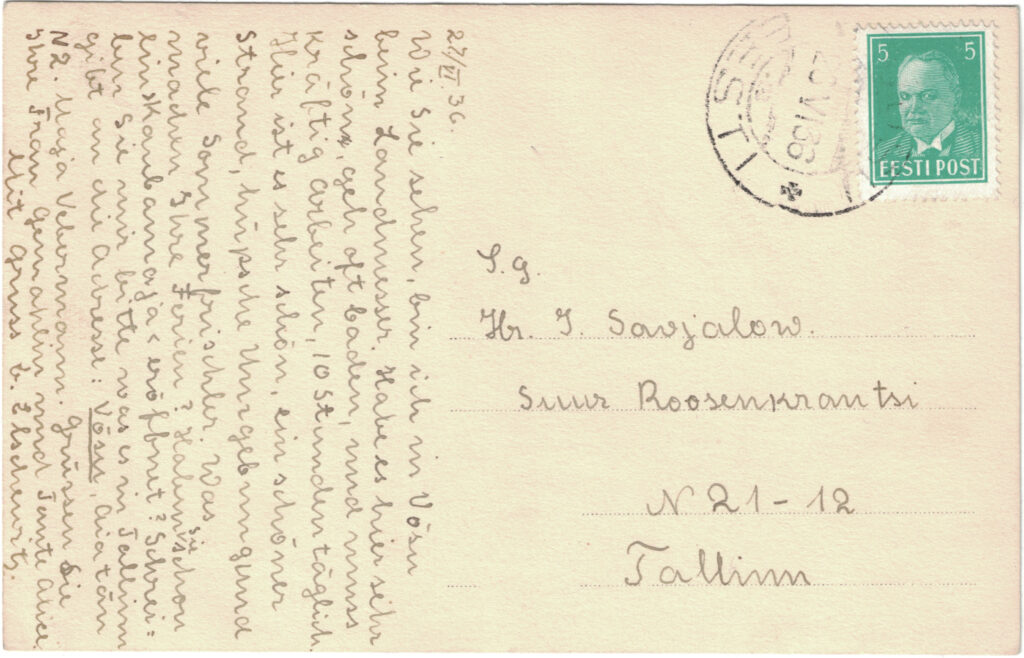 27/VI 36.
Wie Sie sehen, bin ich in Võsu
beim Landmesser. Habe es hier sehr
schön, geh oft baden, und muss
kräftig arbeiten, 10 Stunden täglich
Hier ist es sehr schön, ein schöner
Strand, hüpsche Umgebung und
viele Sommerfrischler. Was
machen Ihre Ferien? Haben sie schon
Linskaubamaja eröffnet? Schrei=
ben Sie mir bitte was es in Tallinn
gibt an die Adresse: Võsu, Aia tän
N2. Maja Vehrmann. Grüssen Sie
Ihre Frau Gemahlin und Tante Alice.
Mit Gruss
S. g.
Hr. J. Savjalow.
Suur Roosenkrantsi
N 21-12
Tallinn
5 5
EESTI POST
VI 36